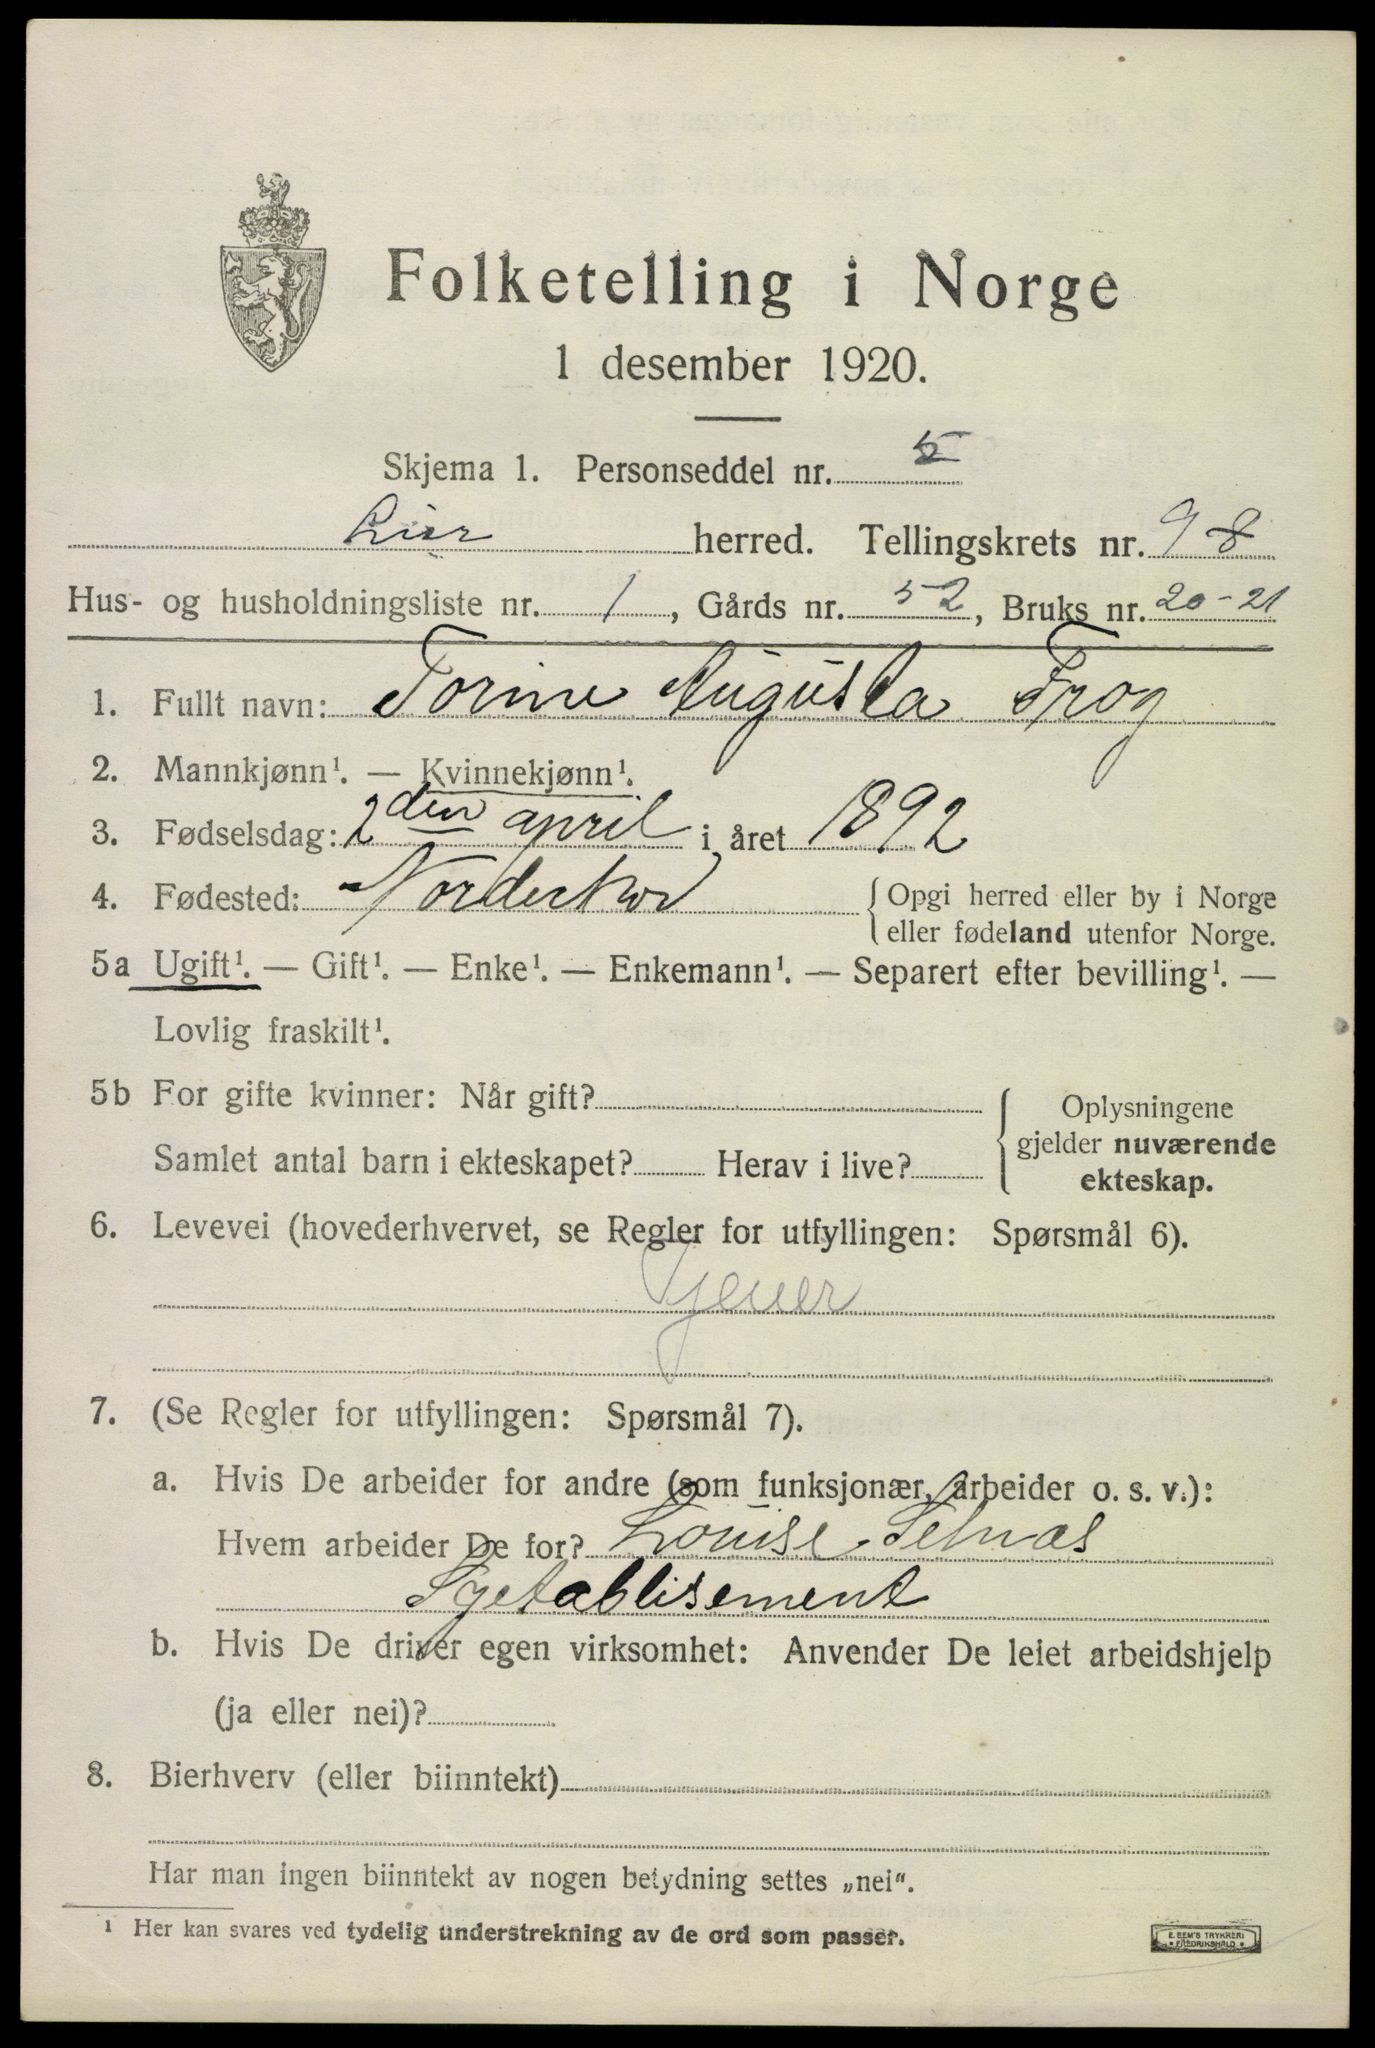 Folketelling i Norge
1 desember 1920.
Skjema 1. Personseddel nr. 5
Lier herred. Tellingskrets nr. 9 8
Hus- og husholdningsliste nr. 1, Gårds nr. 52, Bruks nr. 20-21
1. Fullt navn: Torine Augusta Frog
2. Mannkjønn¹. — Kvinnekjønn¹.
3. Fødselsdag: 2den april i året 1892
4. Fødested: Norderhov { Opgi herred eller by i Norge
eller fødeland utenfor Norge.
5a Ugift¹. — Gift¹. — Enke¹. — Enkemann¹. — Separert efter bevilling¹. —
Lovlig fraskilt¹.
5b For gifte kvinner: Når gift?
Samlet antal barn i ekteskapet? Herav i live?
Oplysningene
gjelder nuværende
ekteskap.
6. Levevei (hovederhvervet, se Regler for utfyllingen: Spørsmål 6).
7. (Se Regler for utfyllingen: Spørsmål 7).
a. Hvis De arbeider for andre (som funksjonær, arbeider o. s. v.):
Hvem arbeider De for? Louise Selnæs
Syetablisement
b. Hvis De driver egen virksomhet: Anvender De leiet arbeidshjelp
(ja eller nei)?
8. Bierhverv (eller biinntekt)
Har man ingen biinntekt av nogen betydning settes „nei“.
¹ Her kan svares ved tydelig understrekning av de ord som passer.
E. SEM'S TRYKKERI
FREDRIKSHALD